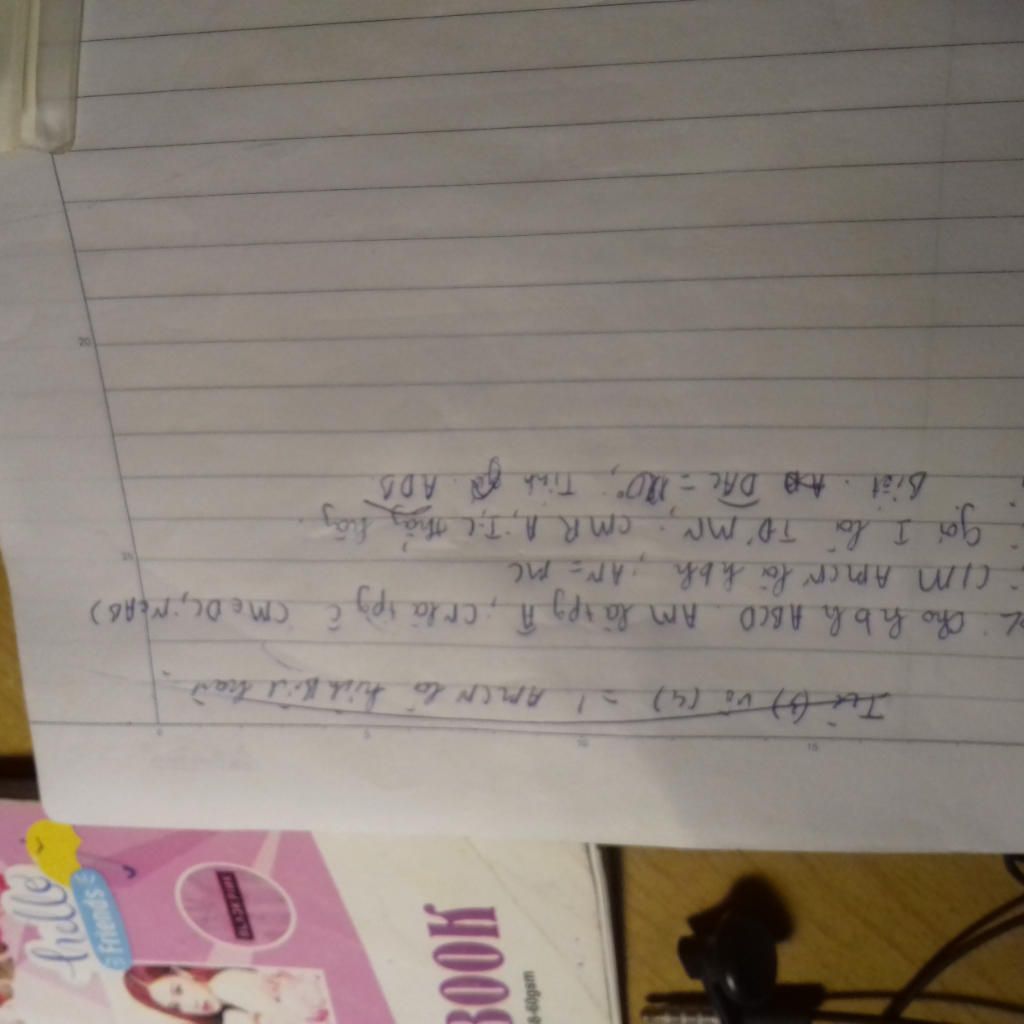 Từ (3) và (4) => AMCN là hình bình hành
Cho hbh ABCD AM là tpg Â, CN là tpg Ĉ (M∈DC, N∈AB)
C/M AMCN là hbh, AN = MC
Gọi I là TĐ MN. CMR A, I, C thẳng hàng.
Biết DAC = 120°, Tính ADB
20
25
0
5
10
15
hello
Friends
BLACKPINK
BOOK
60gsm